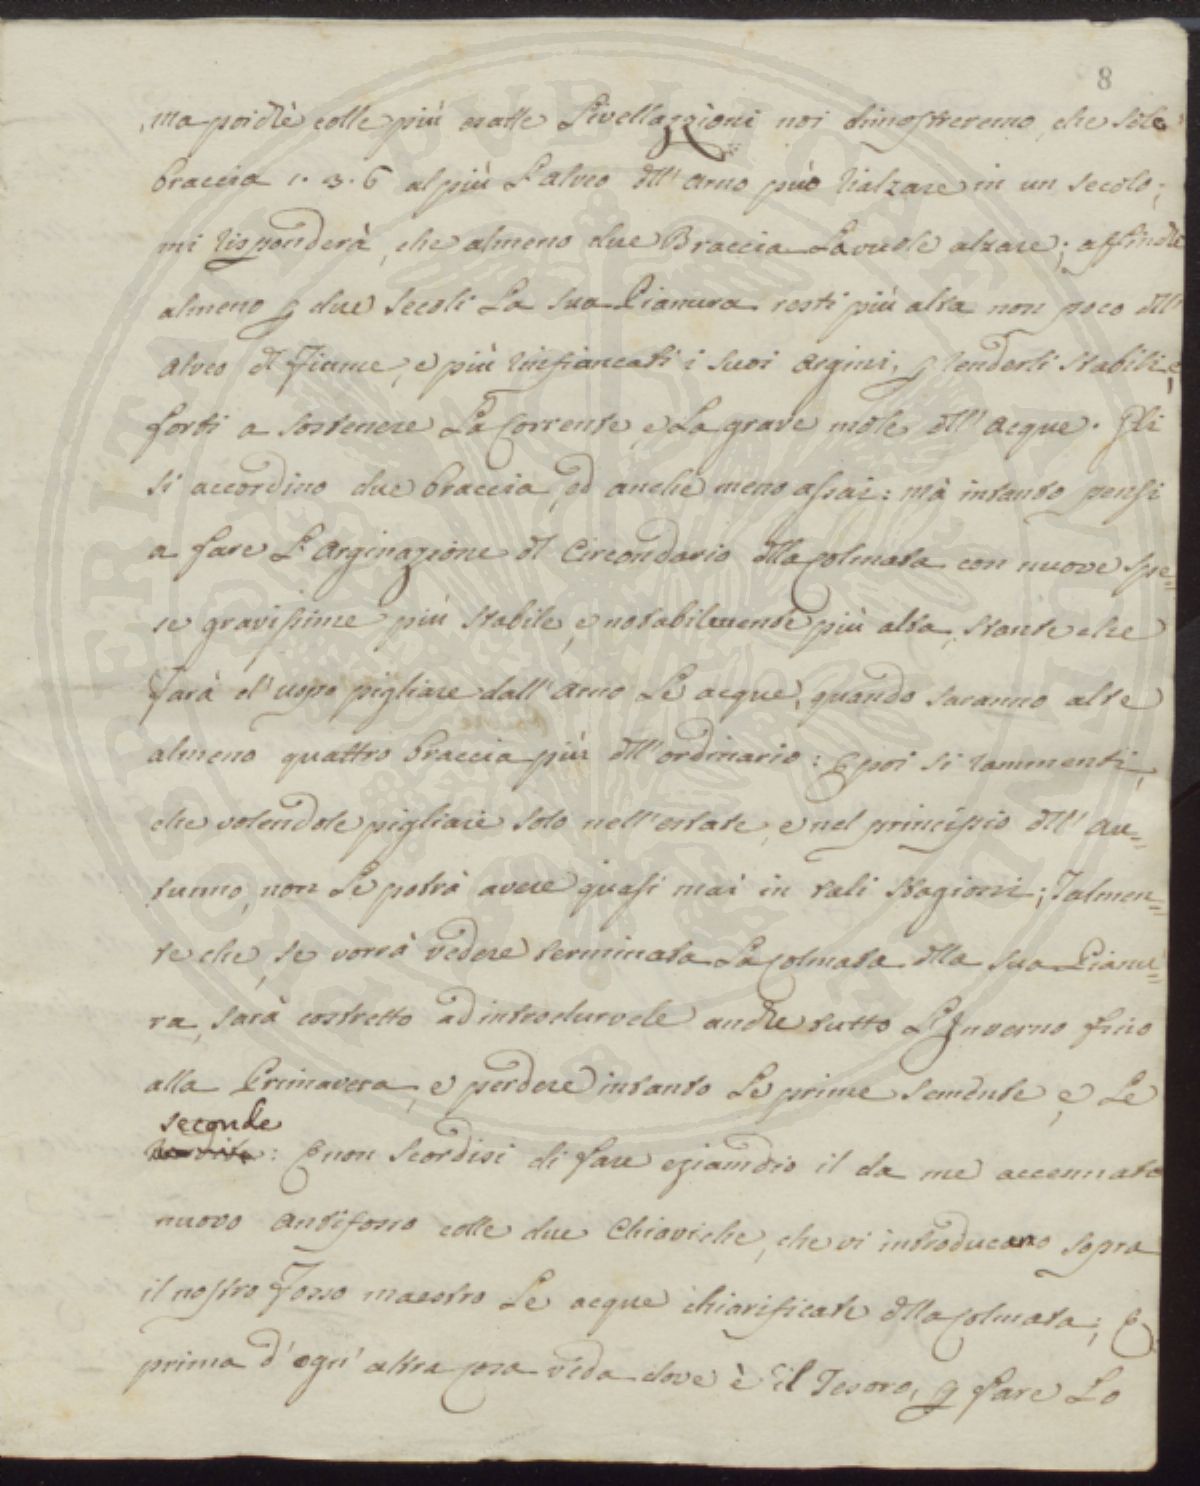 8
ma poichè colle più esatte Livellazzioni noi dimostreremo, che sole
braccia 1. 3. 6 al più L'alveo dll' Arno può rialzare in un secolo;
mi risponderà, che almeno due Braccia La vuole alzare; affinchè
almeno p due secoli La sua Pianura resti più alta non poco dll'
alveo dl Fiume, e più rinfiancati i suoi Argini, p renderli stabili, e
forti a sostenere La Corrente, e La grave mole dll' Acque. Gli
si accordino due braccia, ed anche meno assai: mà intanto pensi
a fare L'Arginazione dl Circondario dlla Colmata con nuove spe=
se gravissime più stabile, e notabilmente più alta, stante che
farà d'uopo pigliare dall' Arno Le acque, quando saranno alte
almeno quattro braccia più dll' ordinario: E poi si rammenti,
che volendole pigliare solo nell' estate, e nel principio dll' Au=
tunno, non Le potrà avere quasi mai in tali stagioni; Talmen=
te che, se vorrà vedere terminata La Colmata dlla sua Pianu=
ra, sarà costretto ad introdurvele anche tutto L'Inverno fino
alla Primavera, e perdere intanto Le prime semente, e Le
seconde
: E non scordisi di fare eziandio il da me accennato
nuovo Antifosso colle due Chiaviche, che vi introducano sopra
il nostro Fosso maestro Le acque chiarificate dlla Colmata; E
prima d'ogn' altra cosa veda dove è il Tesoro, p fare Lo